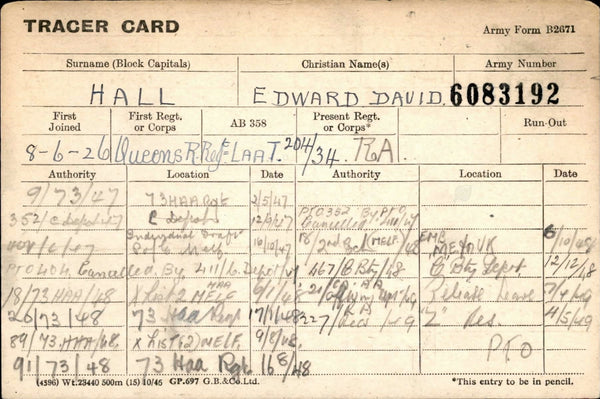 TRACER CARD
Army Form B2671
Surname (Block Capitals) Christian Name(s) Army Number
HALL EDWARD DAVID. 6083192
First Joined First Regt. or Corps AB 358 Present Regt. or Corps* Run-Out
8-6-26 Queens R. Regt. LAAT. 204/34. RA.
Authority Location Date Authority Location Date
9/73/47 73 HAA Rgt 2/5/47
352/C Depot/47 C Depot 12/9/47 PTO 352 By PTO Cancelled
10/10/47 (MELF) /48 EMB MELF/UK 6/10/48
PTO 404 Cancelled. By 411/C. Depot/47 467/B Bty/48 Bty Depot 12/12/48
18/73 HAA/48 X List 2 MELF 9/1/48 Release Leave 7/4/49
26/73/48 73 Haa Regt 17/1/48 227/ /49 "Z" Res. 4/5/49
89/73.HAA/48. X List (2) MELF. 9/8/48. PTO
91/73/48 73 Haa Rgt 16/8/48
(4396) Wt.23440 500m (15) 10/46 GP.697 G.B.&Co.Ltd. *This entry to be in pencil.